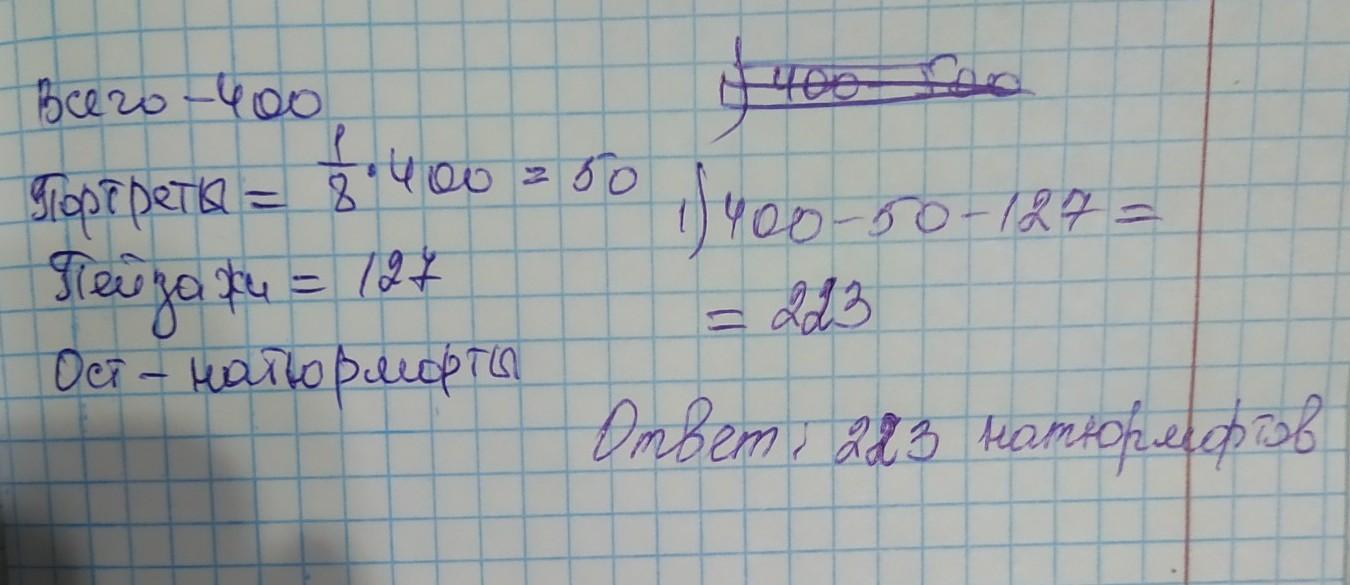 Всего - 400
Портреты = 1/8 · 400 = 50
Пейзажи = 127
Ост - натюрморты
1) 400 - 500
1) 400 - 50 - 127 =
= 223
Ответ: 223 натюрмортов